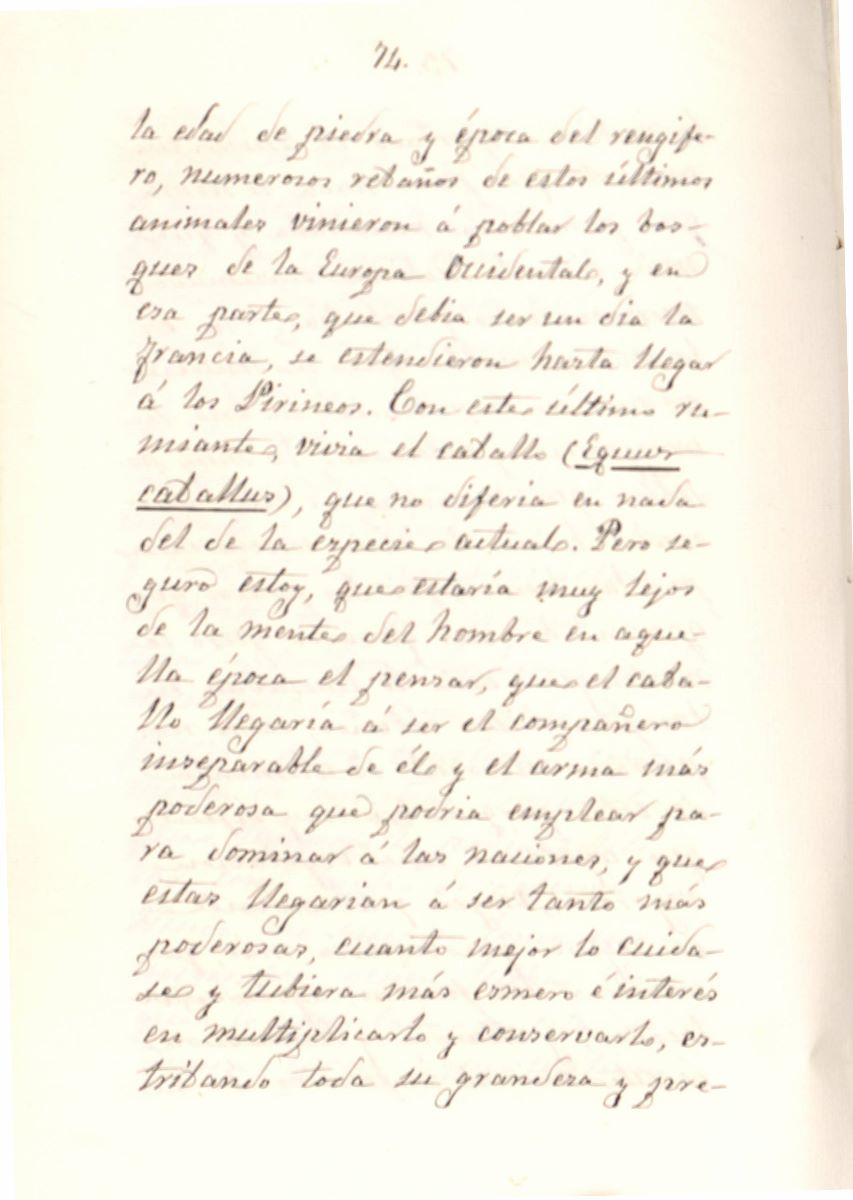 74.
la edad de piedra y época del rengife-
ro, numerosos rebaños de estos últimos
animales vinieron á poblar los bos-
ques de la Europa Occidental, y en
esa parte, que debia ser un dia la
Francia, se estendieron hasta llegar
á los Pirineos. Con este último ru-
miante, vivia el caballo (Equus
caballus), que no diferia en nada
del de la especie actual. Pero se-
guro estoy, que estaría muy lejos
de la mente del hombre en aque-
lla época el pensar, que el caba-
llo llegaría á ser el compañero
inseparable de él y el arma más
poderosa que podria emplear pa-
ra dominar á las naciones, y que
estas llegarian á ser tanto más
poderosas, cuanto mejor lo cuida-
se y tubiera más esmero é interés
en multiplicarlo y conservarlo, es-
tribando toda su grandeza y pre-